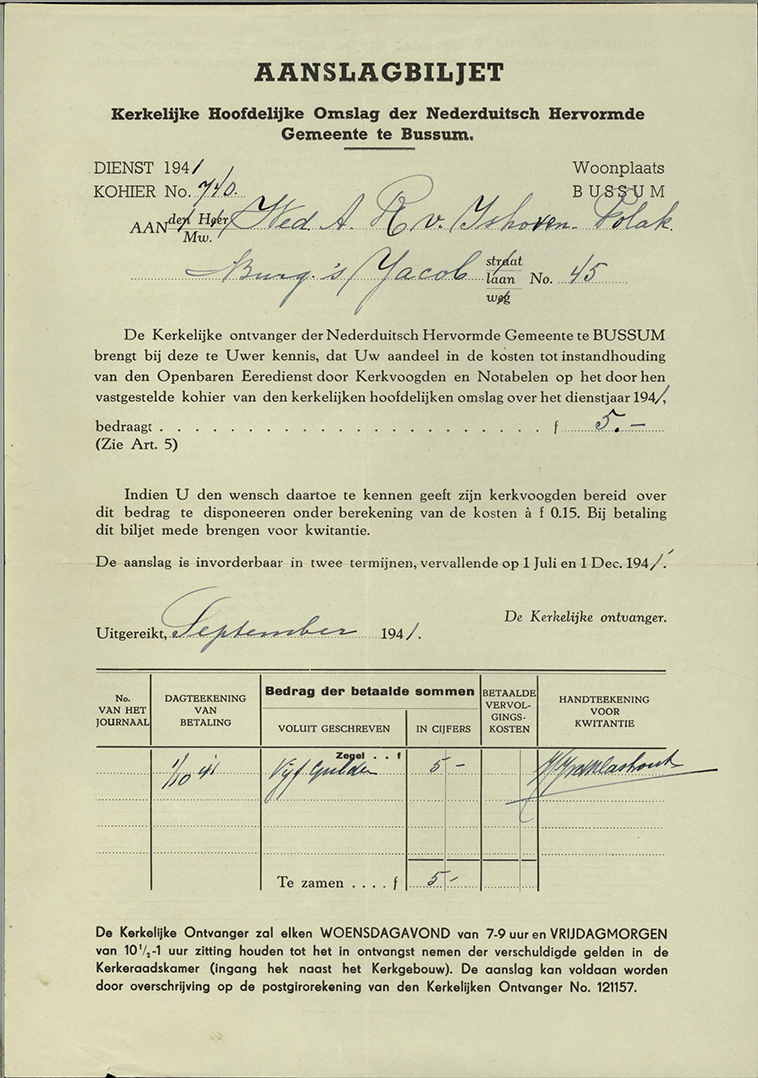 AANSLAGBILJET
Kerkelijke Hoofdelijke Omslag der Nederduitsch Hervormde
Gemeente te Bussum.
DIENST 1941 Woonplaats
KOHIER No. 740. BUSSUM
AAN den Heer Wed. A. R v. IJshoven-Polak.
Mw.
Burg. 's Jacob straat laan weg No. 45
De Kerkelijke ontvanger der Nederduitsch Hervormde Gemeente te BUSSUM
brengt bij deze te Uwer kennis, dat Uw aandeel in de kosten tot instandhouding
van den Openbaren Eeredienst door Kerkvoogden en Notabelen op het door hen
vastgestelde kohier van den kerkelijken hoofdelijken omslag over het dienstjaar 1941,
bedraagt . . . . . . . . . . . . . . . . . . . . . . f 5.—
(Zie Art. 5)
Indien U den wensch daartoe te kennen geeft zijn kerkvoogden bereid over
dit bedrag te disponeeren onder berekening van de kosten à f 0.15. Bij betaling
dit biljet mede brengen voor kwitantie.
De aanslag is invorderbaar in twee termijnen, vervallende op 1 Juli en 1 Dec. 1941.
De Kerkelijke ontvanger.
Uitgereikt, September 1941.
No. VAN HET JOURNAAL
DAGTEEKENING VAN BETALING
Bedrag der betaalde sommen
VOLUIT GESCHREVEN
IN CIJFERS
BETAALDE VERVOL-GINGS-KOSTEN
HANDTEEKENING VOOR KWITANTIE
Zegel . . f
1/10 '41 Vijf Gulden 5 -
Te zamen . . . . f 5 -
De Kerkelijke Ontvanger zal elken WOENSDAGAVOND van 7-9 uur en VRIJDAGMORGEN
van 10½-1 uur zitting houden tot het in ontvangst nemen der verschuldigde gelden in de
Kerkeraadskamer (ingang hek naast het Kerkgebouw). De aanslag kan voldaan worden
door overschrijving op de postgirorekening van den Kerkelijken Ontvanger No. 121157.